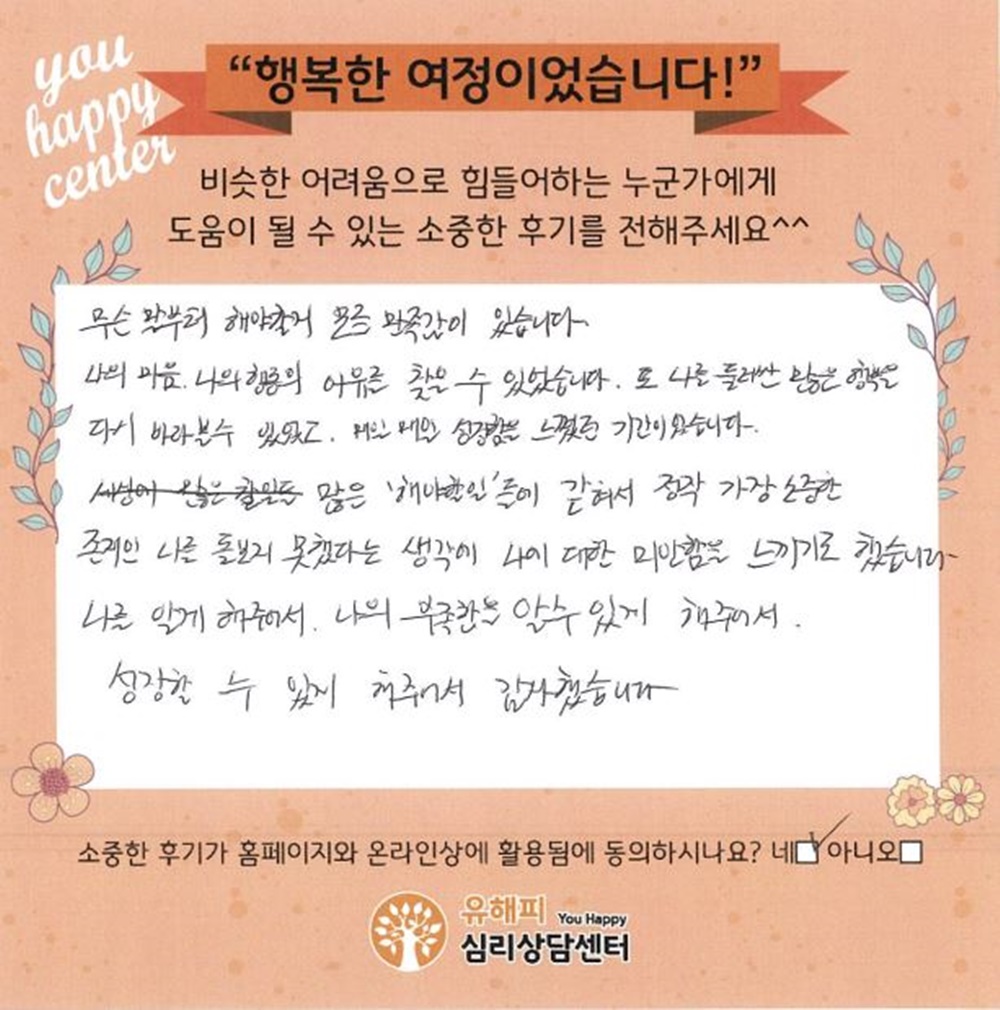 you
happy
center
“행복한 여정이었습니다!”
비슷한 어려움으로 힘들어하는 누군가에게
도움이 될 수 있는 소중한 후기를 전해주세요^^
무슨 말부터 해야할지 모를 만족감이 있습니다.
나의 마음. 나의 행동의 이유를 찾을 수 있었습니다. 또 나를 둘러싼 많은 행복을
다시 바라볼수 있었고, 매일 매일 성장함을 느꼈던 기간이었습니다.
많은 '해야할일'들에 갇혀서 정작 가장 소중한
존재인 나를 돌보지 못했다는 생각에 나에 대한 미안함을 느끼기도 했습니다
나를 알게 해주어서. 나의 부족함을 알수 있게 해주어서.
성장할 수 있게 해주어서 감사했습니다
소중한 후기가 홈페이지와 온라인상에 활용됨에 동의하시나요? 네 아니오
유해피 You Happy
심리상담센터